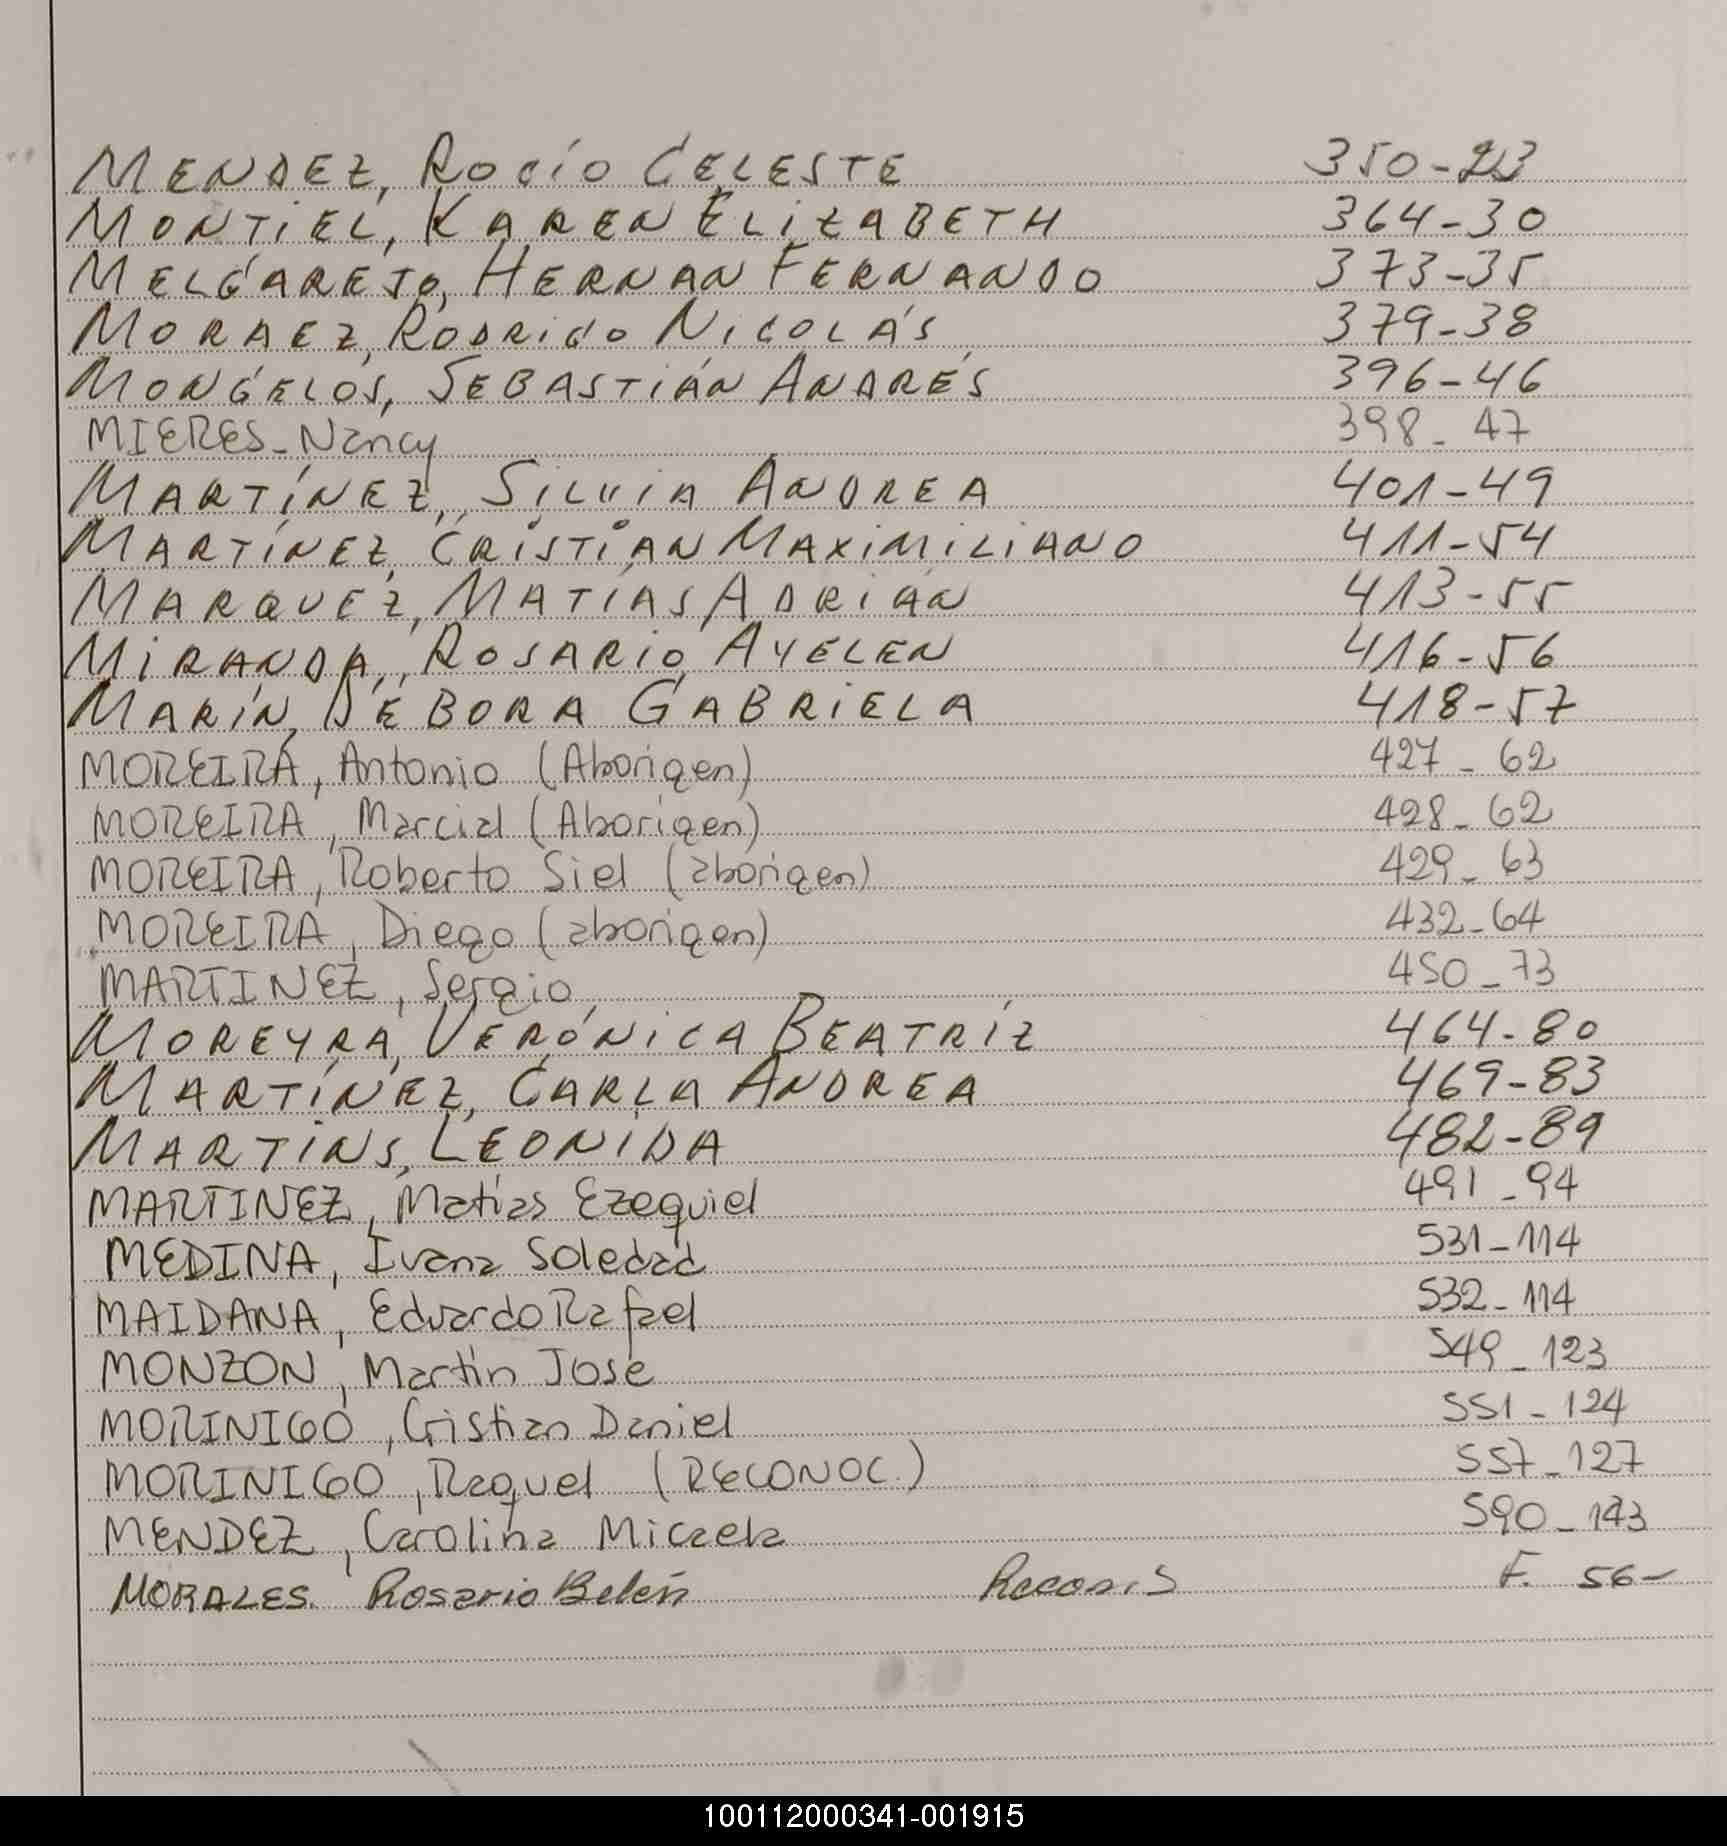 MENDEZ, ROCÍO CELESTE 350-23
MONTIEL, KAREN ELIZABETH 364-30
MELGAREJO, HERNAN FERNANDO 373-35
MORAEZ, RODRIGO NICOLÁS 379-38
MONGELÓS, SEBASTIÁN ANDRÉS 396-46
MIERES-Nancy 398-47
MARTÍNEZ, SILVIA ANDREA 401-49
MARTÍNEZ, CRISTIAN MAXIMILIANO 411-54
MARQUEZ, MATÍAS ADRIÁN 413-55
MIRANDA, ROSARIO AYELEN 416-56
MARÍN, DÉBORA GABRIELA 418-57
MOREIRA, Antonio (Aborigen) 427-62
MOREIRA, Marcial (Aborigen) 428-62
MOREIRA, Roberto Siel (aborigen) 429-63
MOREIRA, Diego (aborigen) 432-64
MARTINEZ, Sergio 450-73
MOREYRA, VERÓNICA BEATRÍZ 464-80
MARTÍNEZ, CARLA ANDREA 469-83
MARTINS, LEONIDA 482-89
MARTINEZ, Matias Ezequiel 491-94
MEDINA, Ivana Soledad 531-114
MAIDANA, Eduardo Rafael 532-114
MONZON, Martin Jose 549-123
MORINIGO, Cristian Daniel 551-124
MORINIGO, Raquel (RECONOC.) 557-127
MENDEZ, Carolina Micaela 590-143
MORALES. Rosario Belén F. 56-
100112000341-001915